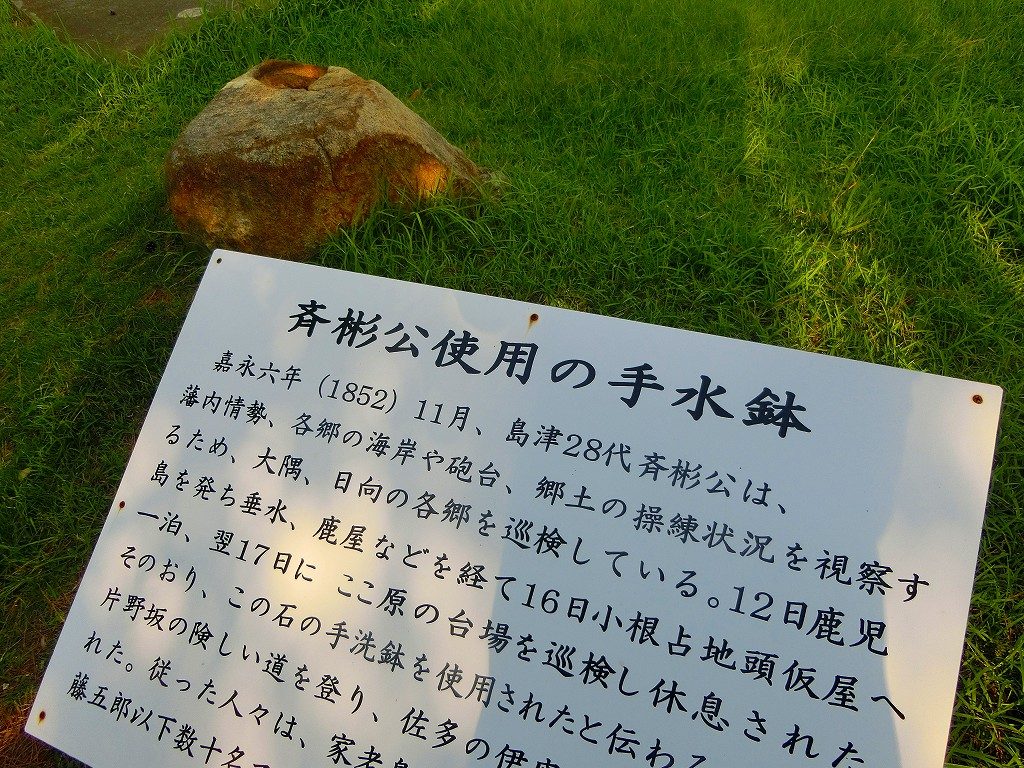 斉彬公使用の手水鉢
嘉永六年（1852）11月、島津28代斉彬公は、
藩内情勢、各郷の海岸や砲台、郷士の操練状況を視察す
るため、大隅、日向の各郷を巡検している。12日鹿児
島を発ち垂水、鹿屋などを経て16日小根占地頭仮屋へ
一泊、翌17日に ここ原の台場を巡検し休息された
そのおり、この石の手洗鉢を使用されたと伝わる
片野坂の険しい道を登り、佐多の伊座
れた。従った人々は、家老島
藤五郎以下数十名